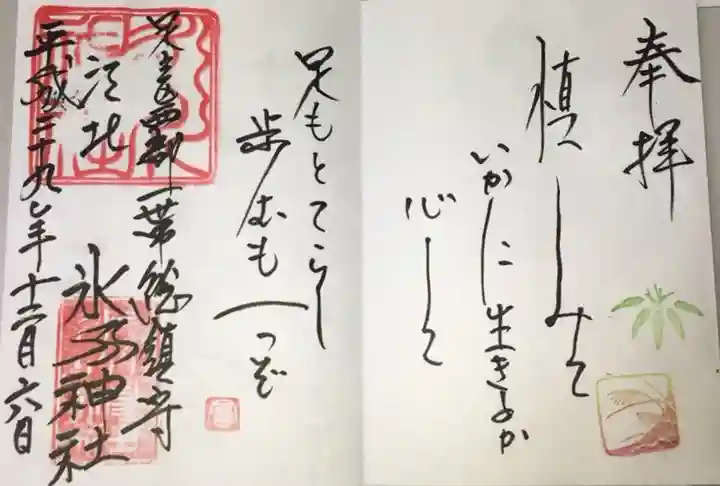 奉拝
慎しみて
いかに生きるか
心して
足もとてらし
歩むも一つぞ
足立西部一帯総鎮守
江北
氷川神社
平成二十九年十二月六日